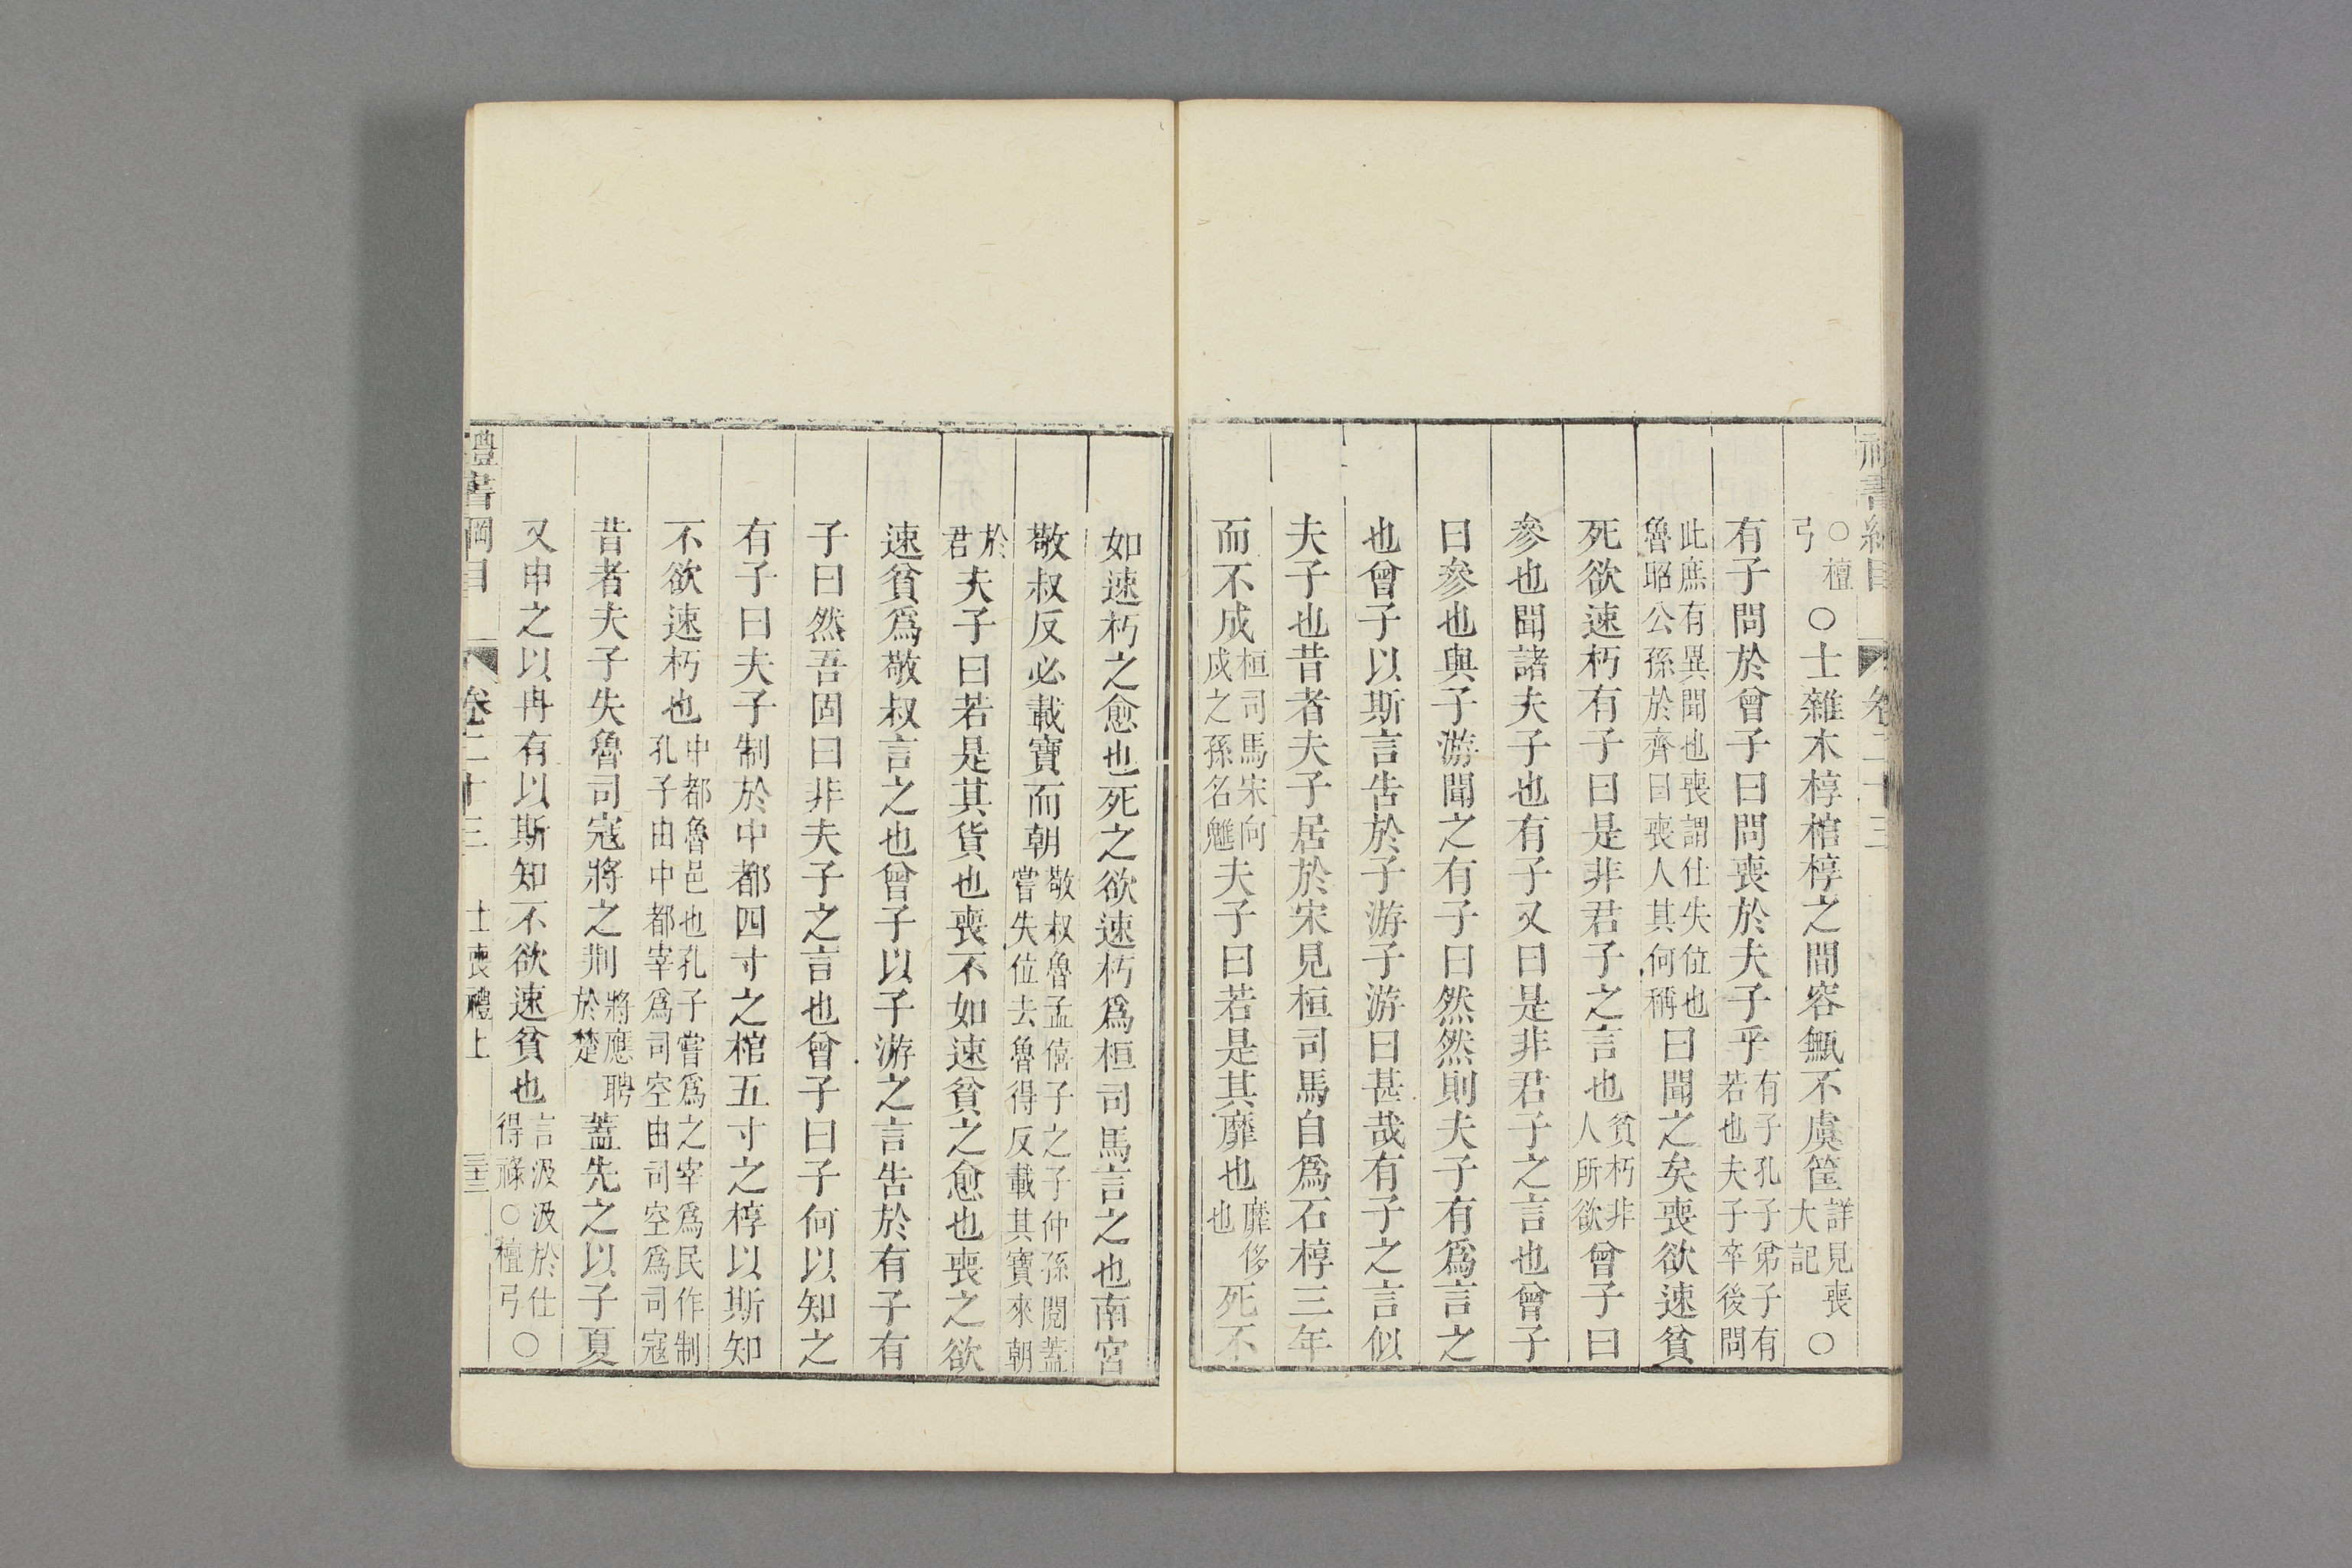 禮書綱目 卷二十三
○檀弓○士雜木椁棺椁之間容甒不虞筐詳見喪大記○
有子問於曾子曰問喪於夫子乎有子孔子弟子有若也夫子卒後問
此庶有異聞也喪謂仕失位也魯昭公孫於齊曰喪人其何稱曰聞之矣喪欲速貧
死欲速朽有子曰是非君子之言也貧朽非人所欲曾子曰
參也聞諸夫子也有子又曰是非君子之言也曾子
曰參也與子游聞之有子曰然然則夫子有爲言之
也曾子以斯言告於子游子游曰甚哉有子之言似
夫子也昔者夫子居於宋見桓司馬自爲石椁三年
而不成桓司馬宋向戌之孫名魋夫子曰若是其靡也靡侈也死不
如速朽之愈也死之欲速朽爲桓司馬言之也南宮
敬叔反必載寶而朝敬叔魯孟僖子之子仲孫閱蓋嘗失位去魯得反載其寶來朝
於君夫子曰若是其貨也喪不如速貧之愈也喪之欲
速貧爲敬叔言之也曾子以子游之言告於有子有
子曰然吾固曰非夫子之言也曾子曰子何以知之
有子曰夫子制於中都四寸之棺五寸之椁以斯知
不欲速朽也中都魯邑也孔子嘗爲之宰爲民作制孔子由中都宰爲司空由司空爲司寇
昔者夫子失魯司寇將之荆將應聘於楚蓋先之以子夏
又申之以冉有以斯知不欲速貧也言汲汲於仕得祿○檀弓○
禮書綱目 卷二十三 士喪禮上 三十三